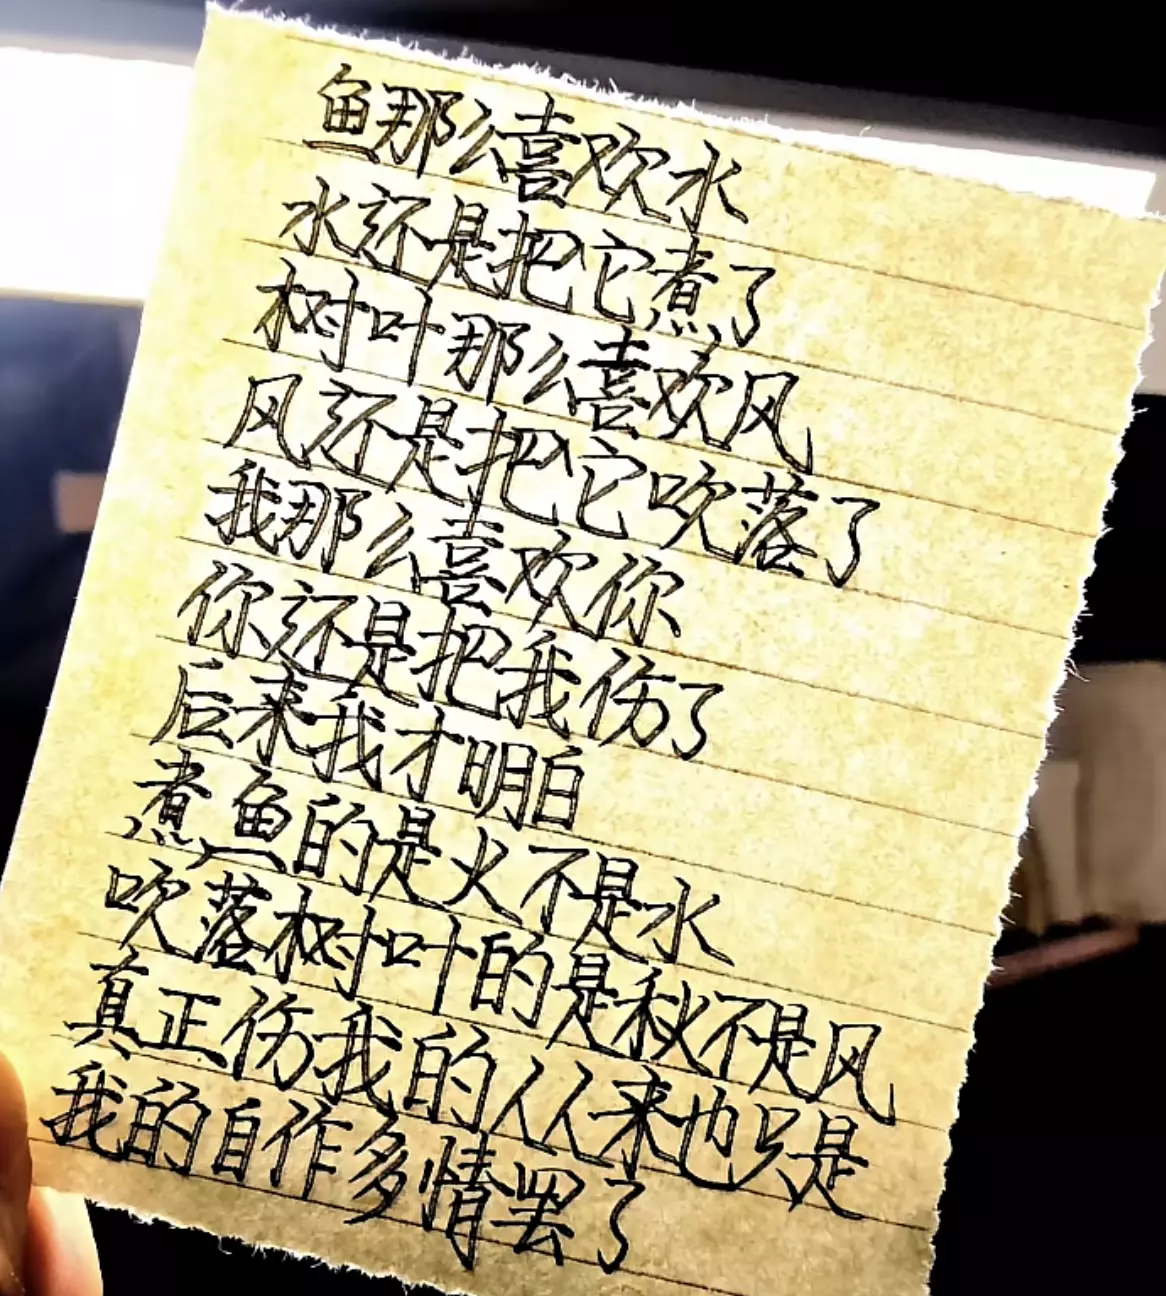 鱼那么喜欢水
水还是把它煮了
树叶那么喜欢风
风还是把它吹落了
我那么喜欢你
你还是把我伤了
后来我才明白
煮鱼的是火不是水
吹落树叶的是秋不是风
真正伤我的从来也只是
我的自作多情罢了